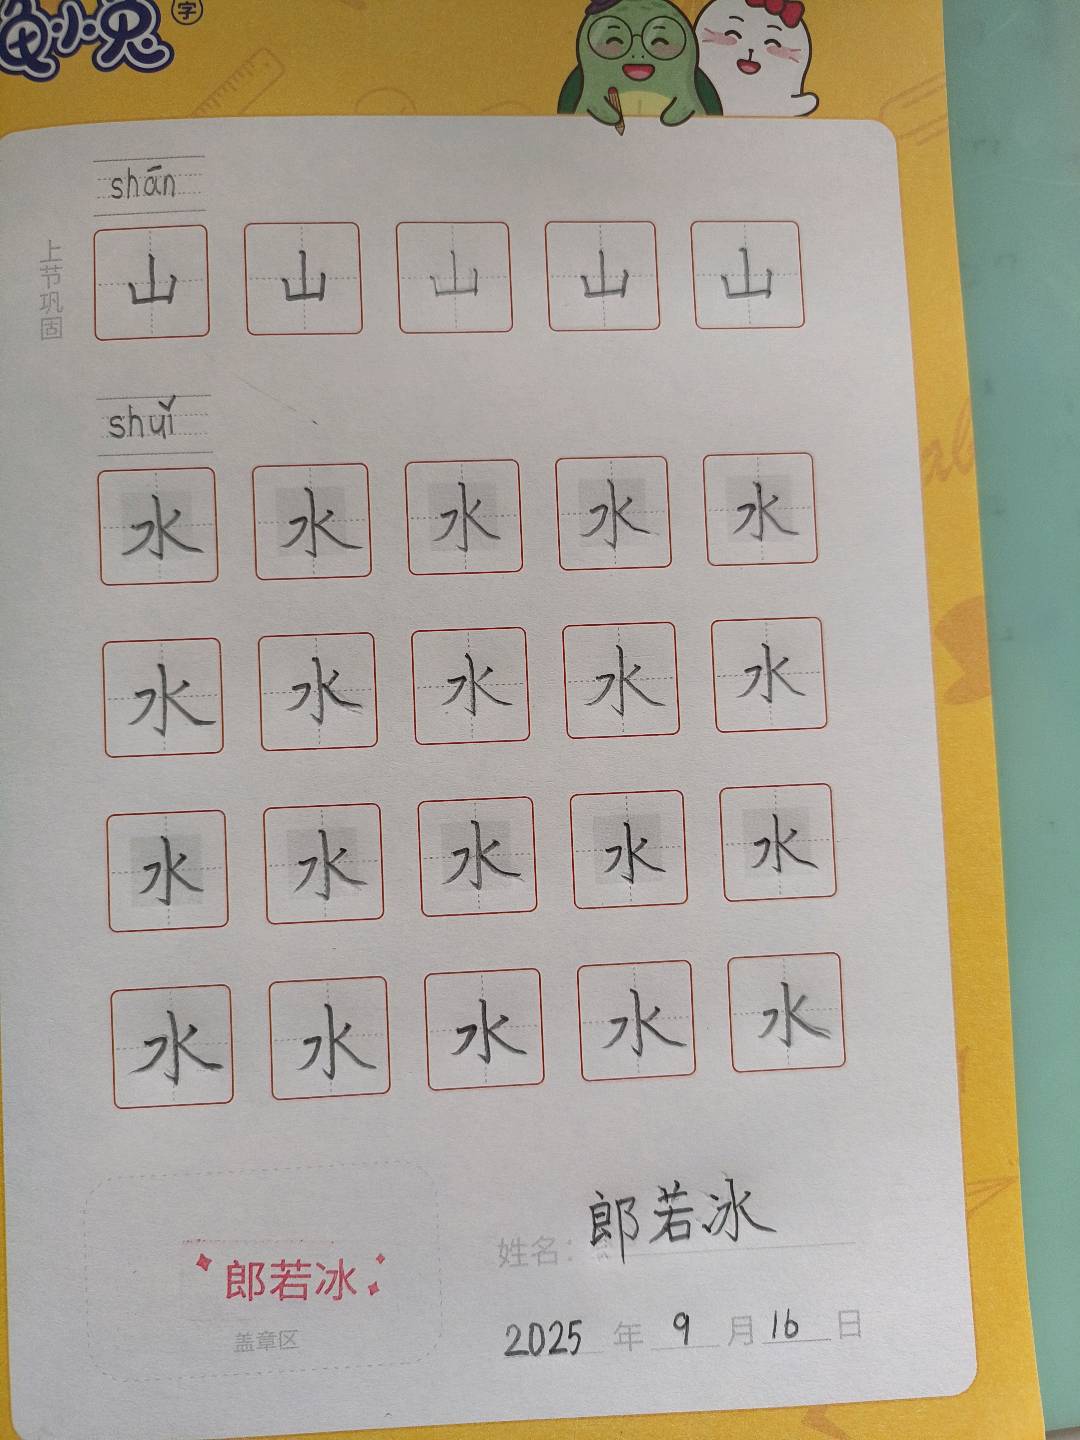 龟小兔字
shān
上节巩固
山 山 山 山 山
shuǐ
水 水 水 水 水
水 水 水 水 水
水 水 水 水 水
水 水 水 水 水
姓名：郎若冰
郎若冰
盖章区
2025年9月16日